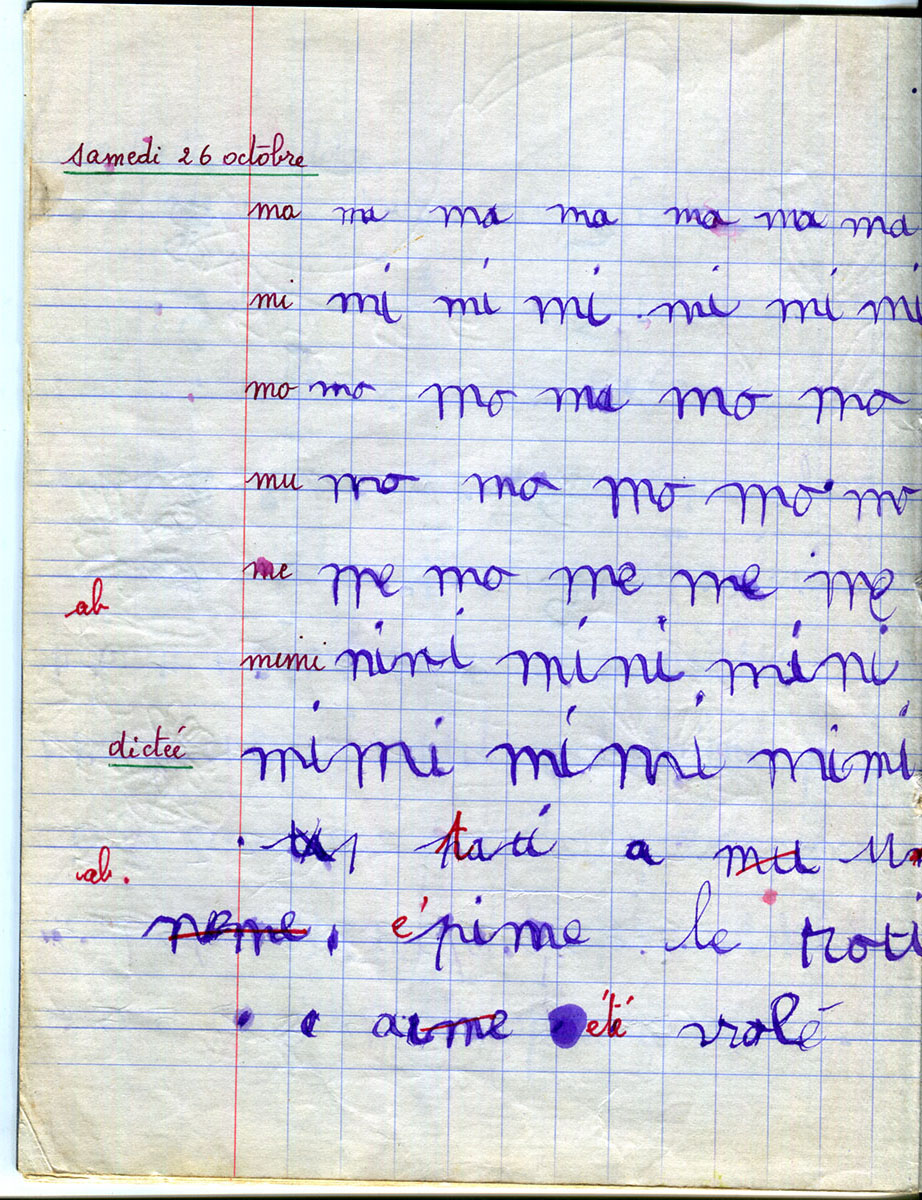 samedi 26 octobre
ma ma ma ma ma ma ma
mi mi mi mi mi mi mi
mo mo mo ma mo mo
mu mo mo mo mo mo
me me mo me me me
ab
mimi mimi mimi mimi
dictée mimi mimi mimi
tati a mu
ab.
meme, épime le troti
a été volé